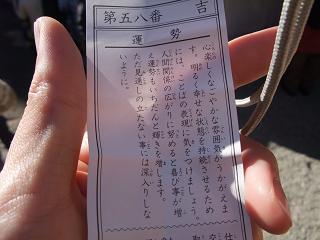 第五八番 吉
運勢
心楽しくなごやかな雰囲気がうかがえま
す。明るく幸せな状態を持続させるため
には、ことばの表現に気をつけましょう。
人間関係の広がりに努めると喜び事が増
え運勢もいちだんと輝きを増します。
ただ見通しの立たない事には深入りしな
いように。